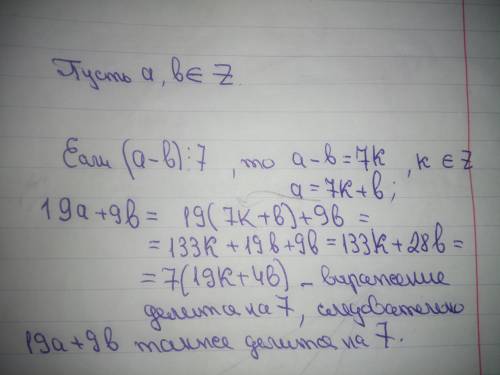 Пусть a, b ∈ Z.
Если (a-b):7, то a-b=7k, k ∈ Z
a=7k+b;
19a+9b= 19(7k+b)+9b =
=133k+19b+9b=133k+28b=
=7(19k+4b) - выражение
делится на 7, следовательно
19a+9b также делится на 7.